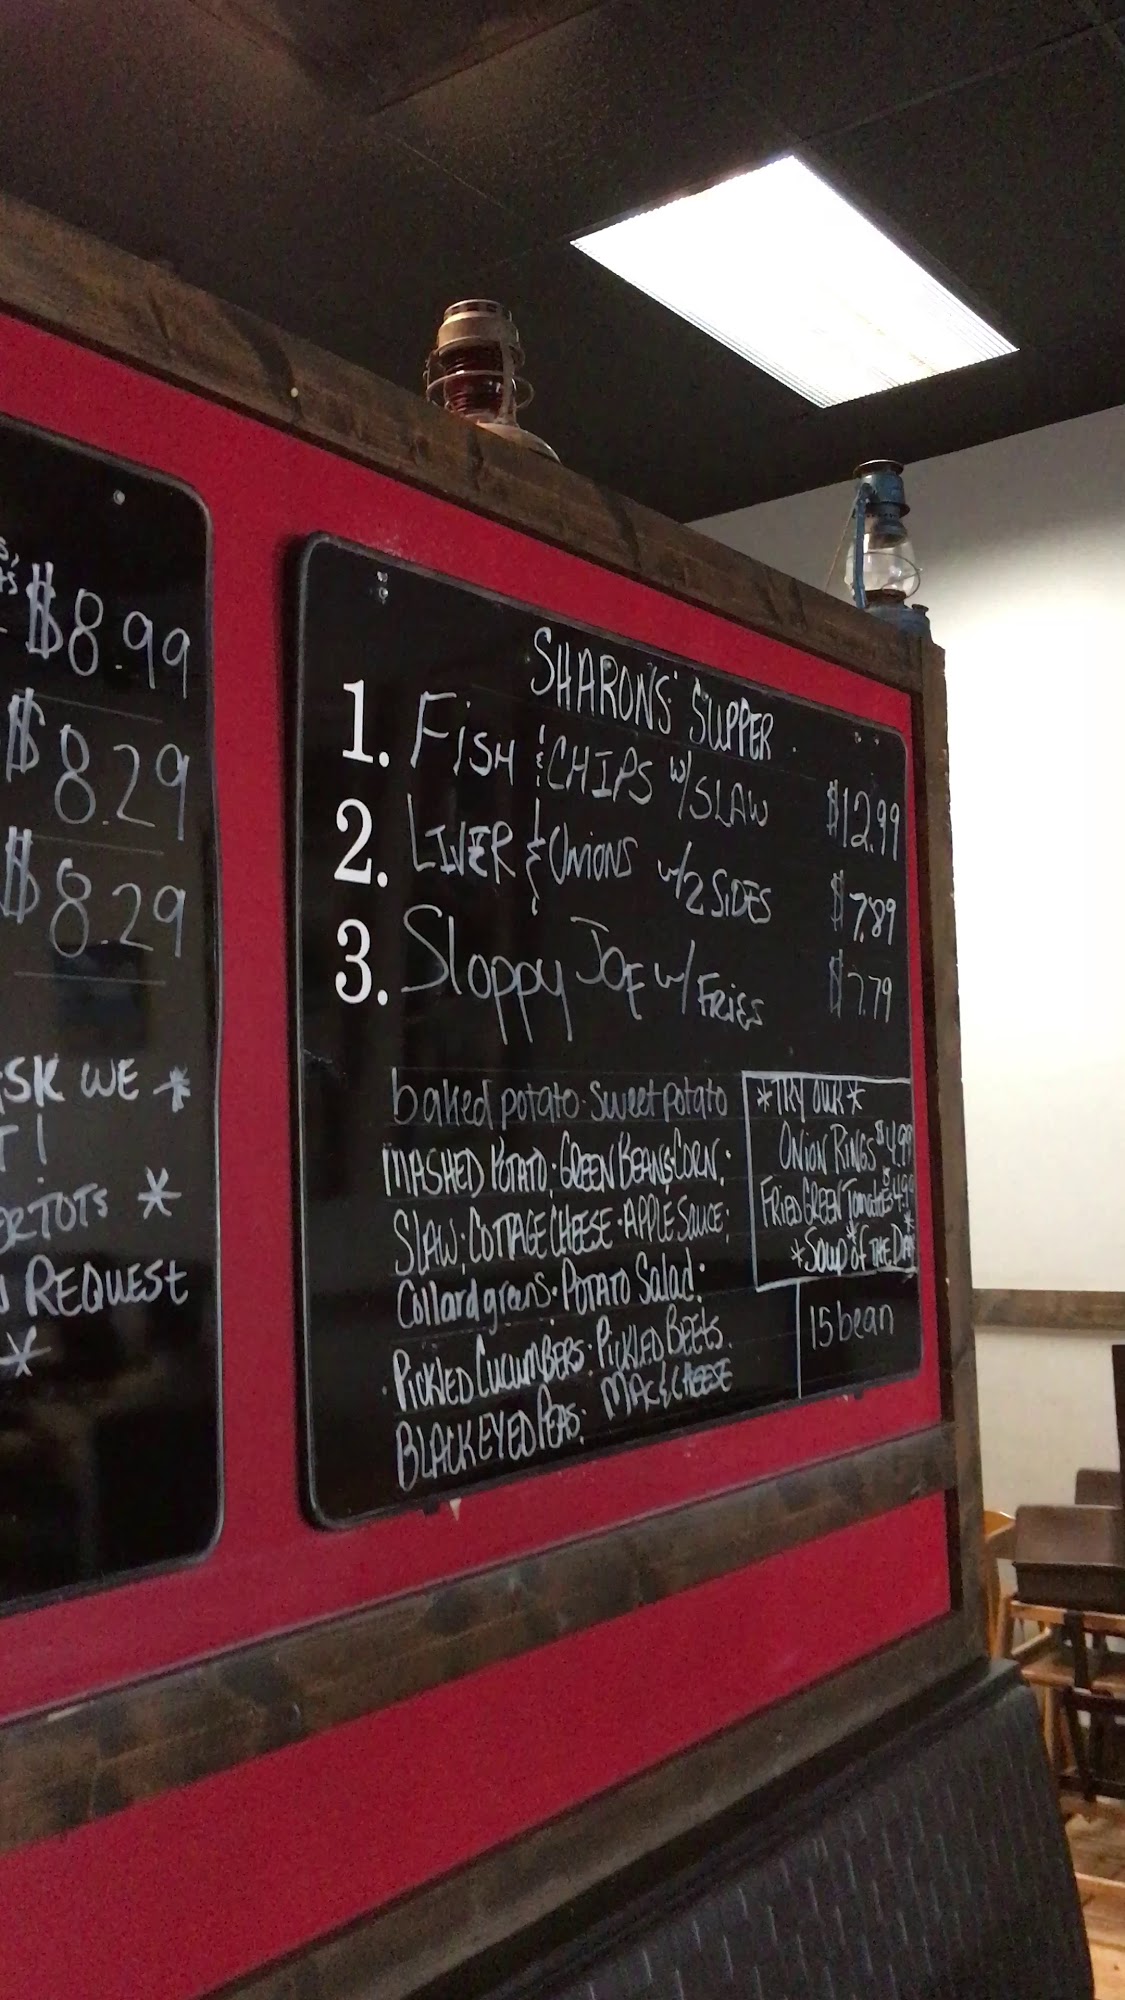 $8.99
$8.29
$8.29
SK WE *
T!
ERTOTS *
REQUEST
*
SHARONS' SUPPER
1. FISH & CHIPS w/ SLAW $12.99
2. LIVER & ONIONS w/ 2 SIDES $7.89
3. Sloppy JOE w/ FRIES $7.79
baked potato · sweet potato
MASHED POTATO · GREEN BEANS · CORN ·
SLAW · COTTAGE CHEESE · APPLE SAUCE ·
Collard greens · POTATO Salad ·
· PICKLED CUCUMBERS · PICKLED BEEts ·
BLACKEYED PEAS · MAC & CHEESE
*TRY OUR*
ONION RINGS $4.99
FRIED GREEN Tomatoes $4.99
*SOUP OF THE DAY*
15 bean